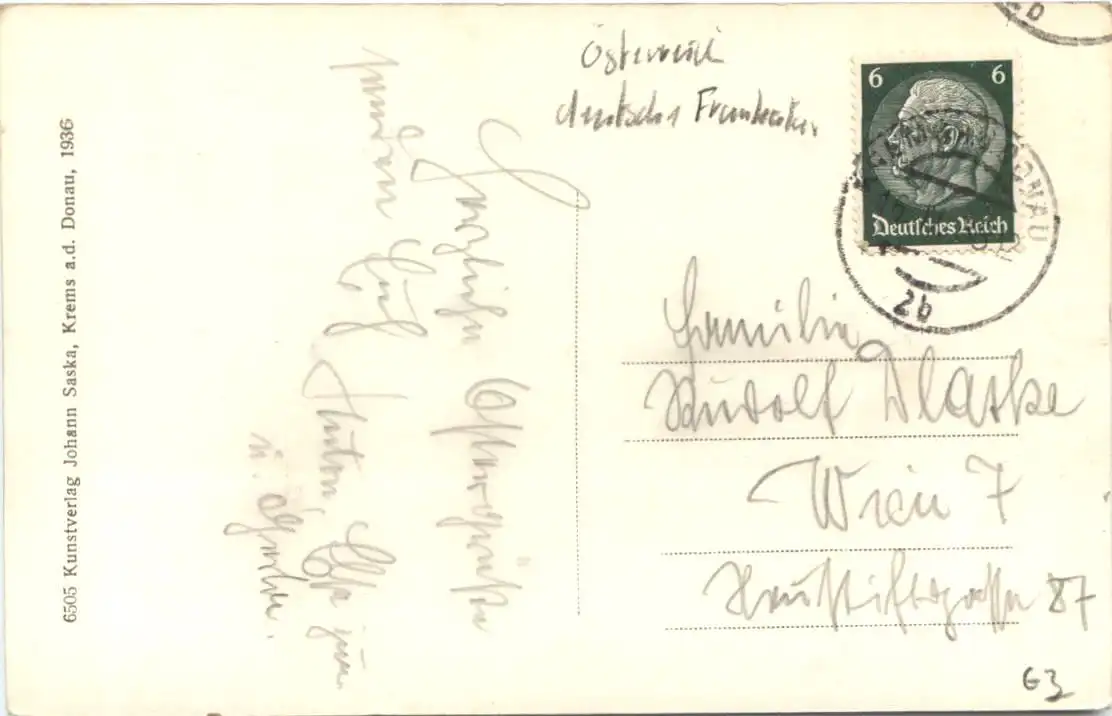 6505 Kunstverlag Johann Saska, Krems a.d. Donau, 1936
Herzliche Ostergrüße
senden Euch
Anton,
u.
Österreich
deutsche Frankatur
6 6
Deutsches Reich
DONAU
2b
b
Familie
Rudolf Dlaske
Wien 7
Neustiftgasse 87
G3